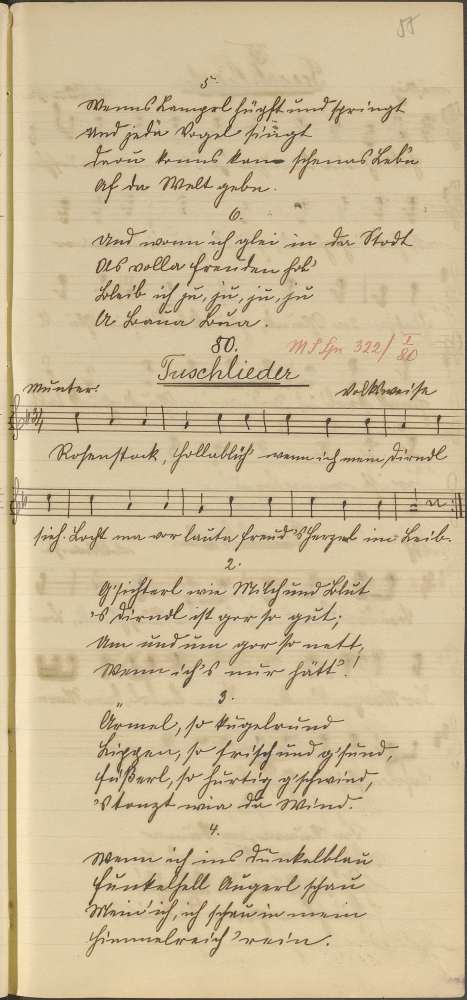 55
5.
Wenns Lamperl hüpft und springt
Und jeda Vogel singt
Drau kanns kan schenas Leb'n
Af da Welt gebn.
6.
Und wann ich glei in da Stodt
Ols volla Freuden hob'
Bleib ich ju, ju, ju, ju
A Baua Bua.
80. MS Spr 322/ I/80
Tuschlieder
Munter. Volksweise
Rosenstock, Hollablüh' wenn ich mein Dirndl
sieh. Locht ma vor lauta Freud 's Herzerl im Leib.
2.
G'sichterl wie Milch und Blut
's Dirndl ist gor so gut;
Um und um gor so nett,
Wenn ich's nur hätt'!
3.
Ärmel, so kugelrund
Lippen, so frisch und g'sund,
Füßerl, so hurtig g'schwind,
's tanzt wia da Wind.
4.
Wenn ich ins dunkelblau
Funkelhell Augerl schau
Mein' ich, ich schau in mein
Himmelreich 'nein.